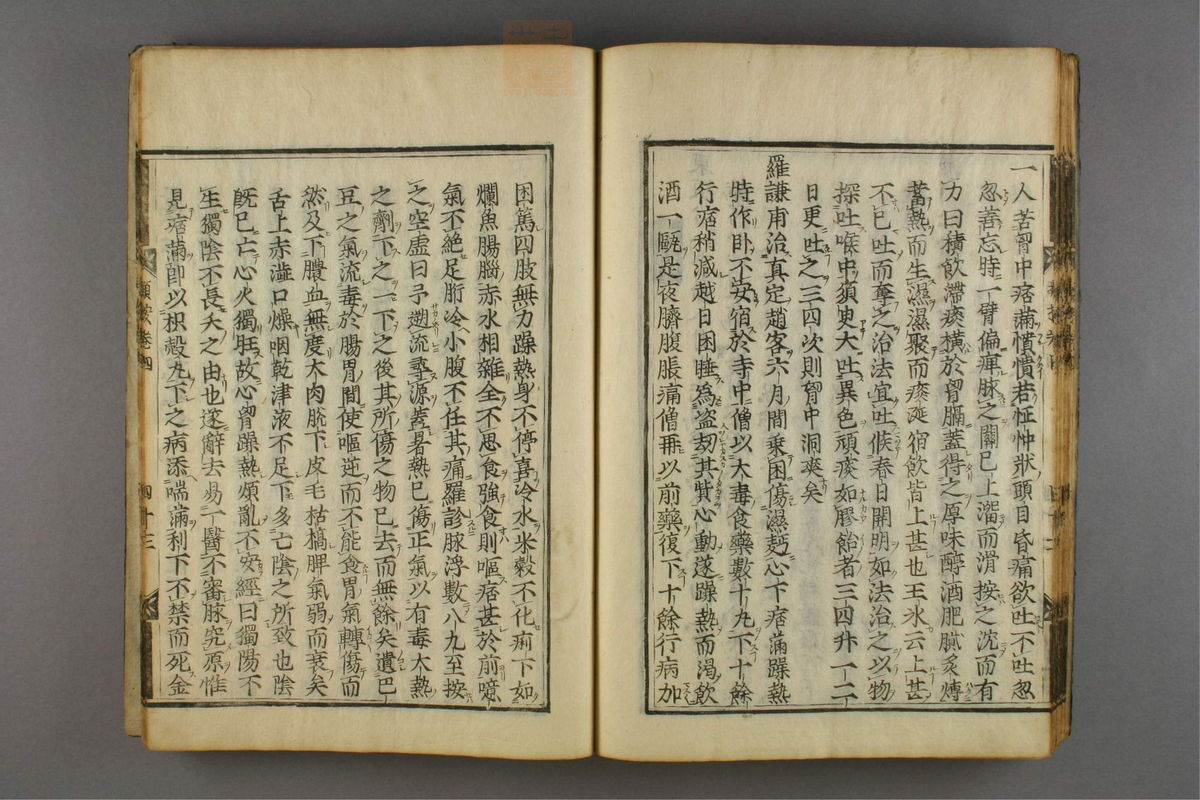 一人苦胷中痞滿憒憒若怔忡狀頭目昏痛欲吐不吐忽
忽善忘時一臂偏痺脉之關已上溜而滑按之沈而有
力曰積飲滯痰橫於胷膈蓋得之厚味醇酒肥膩炙煿
蓄熱而生濕濕聚而痰涎宿飲皆上甚也王氷云上甚
不已吐而奪之治法宜吐候春日開明如法治之以物
探吐喉中須臾大吐異色頑痰如膠飴者三四升一二
日更吐之三四次則胷中洞爽矣
羅謙甫治真定趙客六月間乗困傷濕麪心下痞滿躁熱
時作卧不安宿於寺中僧以大毒食藥數十丸下十餘
行痞稍減越日困睡為盗刼其貲心動遂躁熱而渴飲
酒一甌是夜臍腹脹痛僧再以前藥復下十餘行病加
困篤四肢無力躁熱身不停喜冷水米穀不化痢下如
爛魚腸腦赤水相雜全不思食強食則嘔痞甚於前噫
氣不絶足胻冷小腹不任其痛羅診脉浮數八九至按
之空虚曰予遡流尋源蓋暑熱已傷正氣以有毒大熱
之劑下之一下之後其所傷之物已去而無餘矣遺巴
豆之氣流毒於腸胃間使嘔逆而不能食胃氣轉傷而
然及下膿血無度大肉脫下皮毛枯槁脾氣弱而衰矣
舌上赤澁口燥咽乾津液不足下多亡陰之所致也陰
既已亡心火獨旺故心胷躁熱煩亂不安經曰獨陽不
生獨陰不長夭之由也遂辭去易一醫不審脉究原惟
見痞滿即以枳殼丸下之病添喘滿利下不禁而死金
類按卷四
四十三